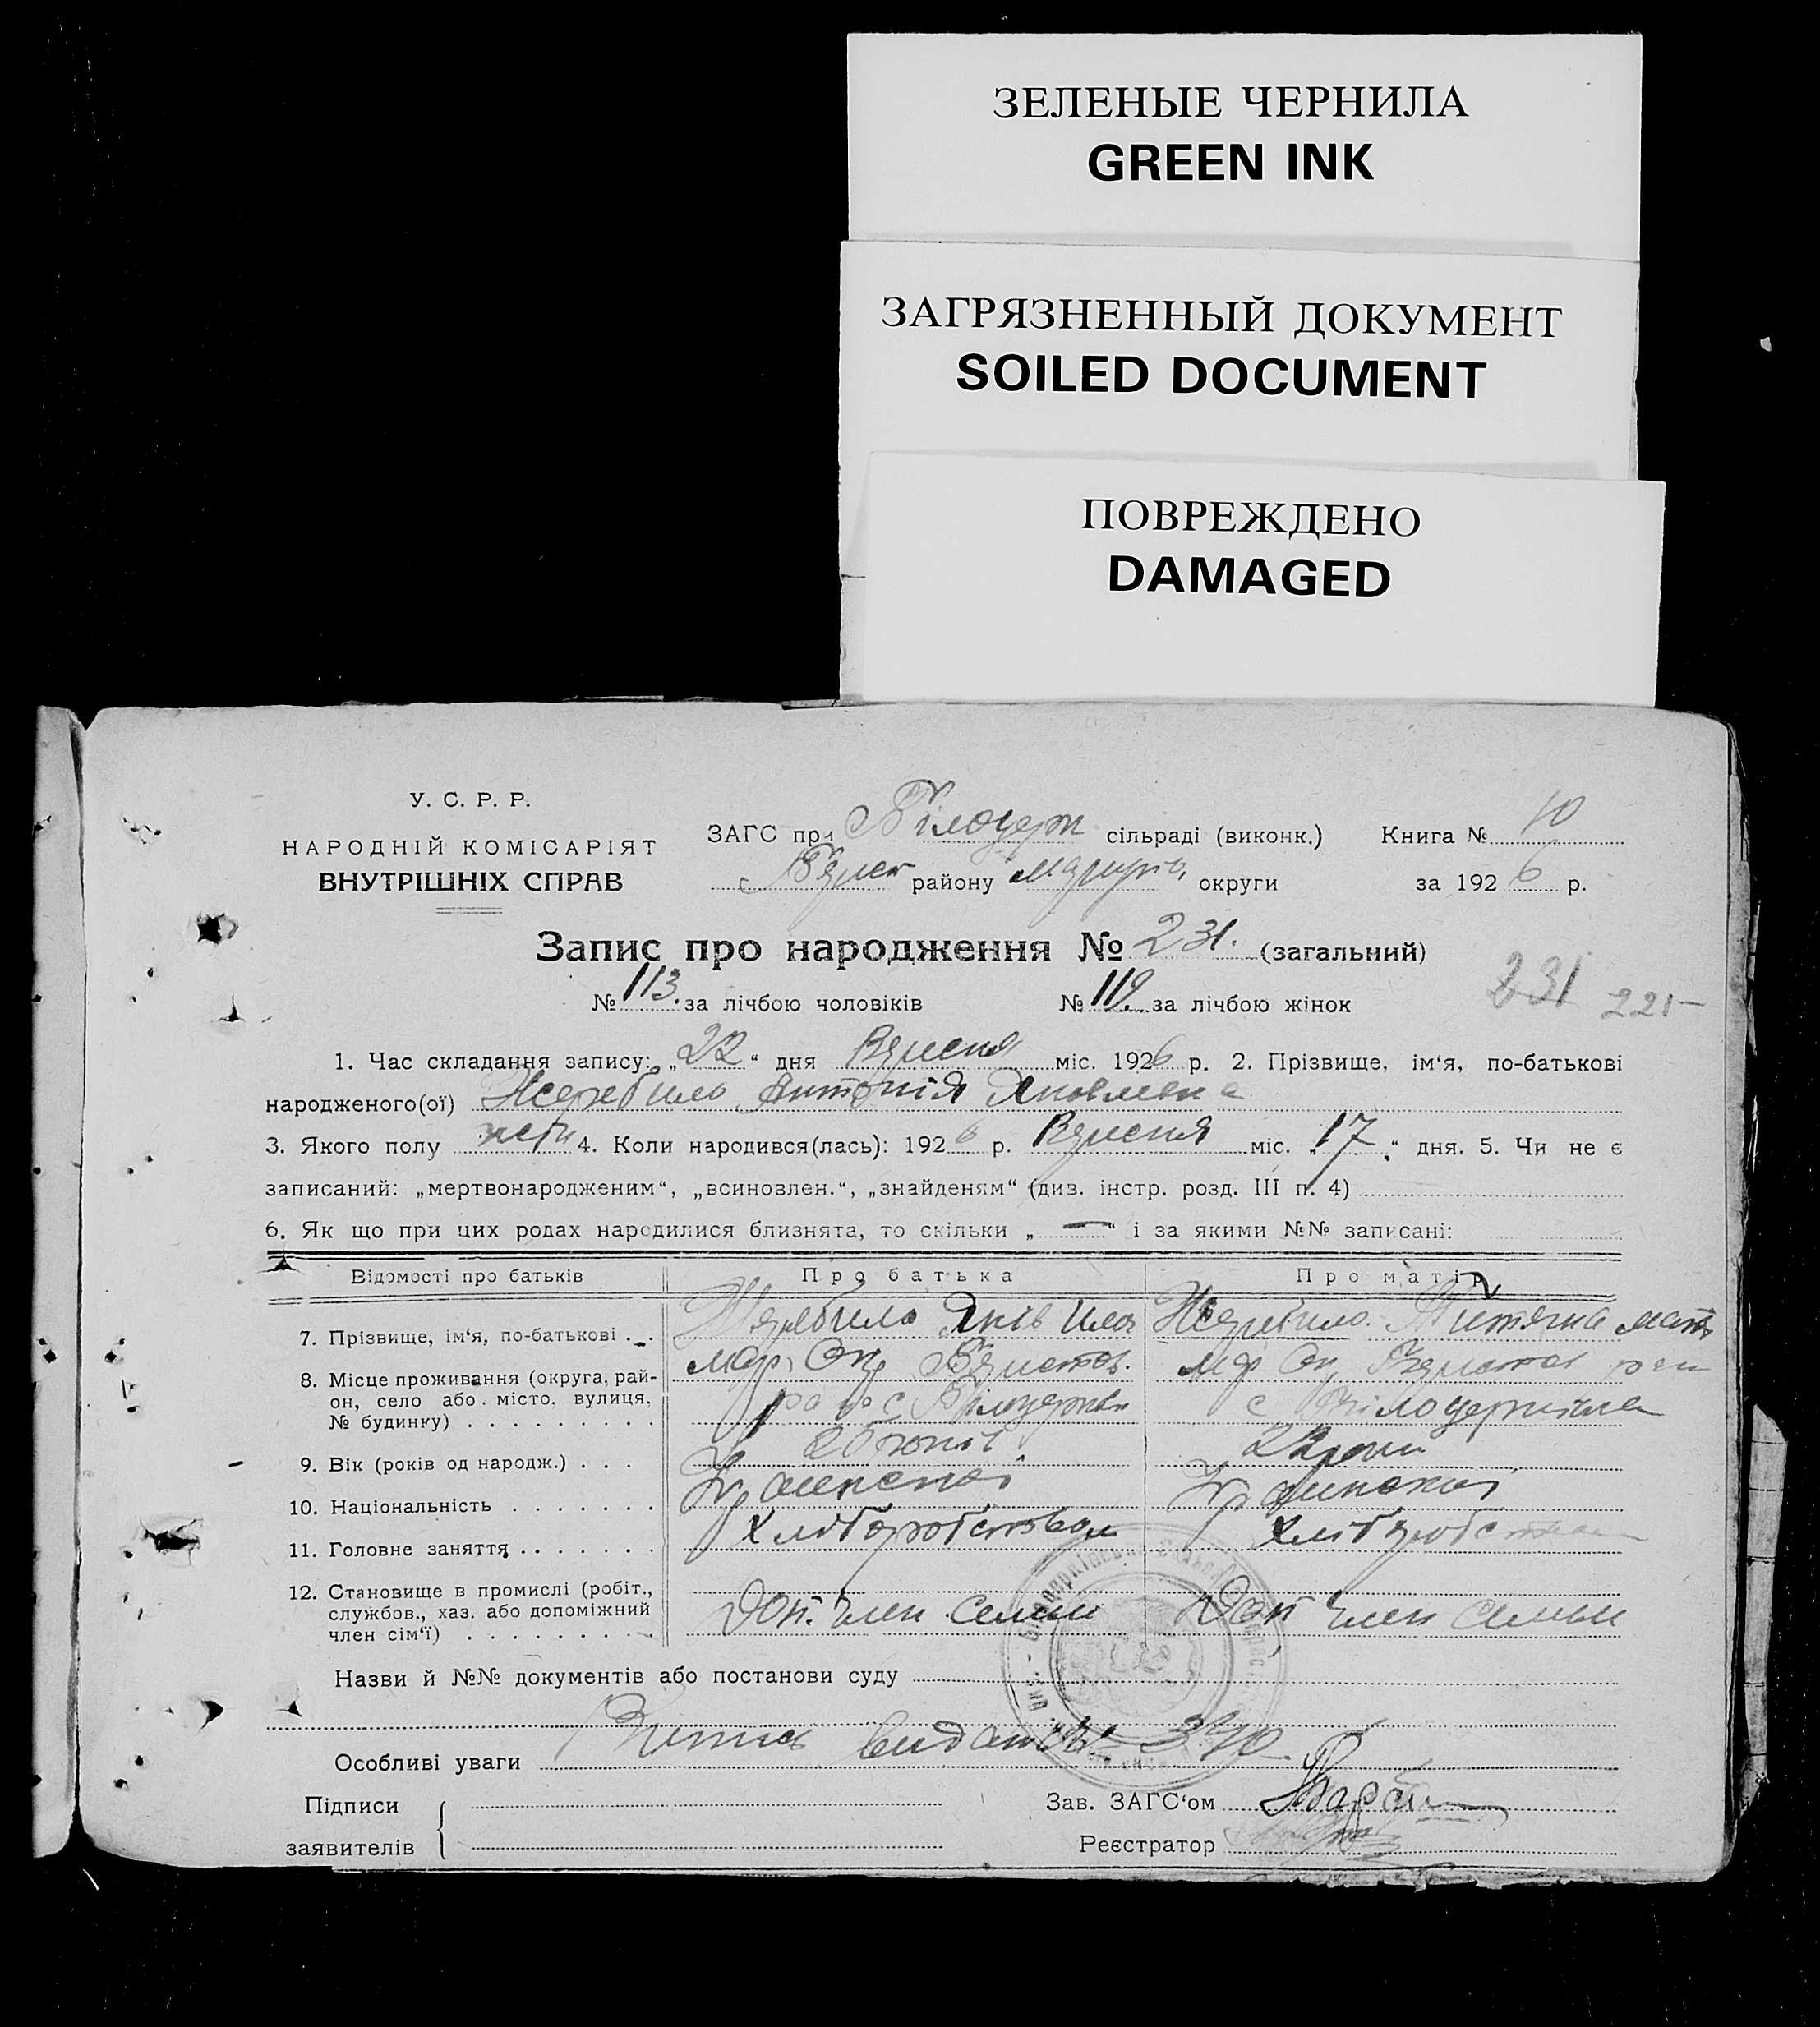 ЗЕЛЕНЫЕ ЧЕРНИЛА
GREEN INK
ЗАГРЯЗНЕННЫЙ ДОКУМЕНТ
SOILED DOCUMENT
ПОВРЕЖДЕНО
DAMAGED
У. С. Р. Р.
НАРОДНІЙ КОМІСАРІЯТ
ВНУТРІШНІХ СПРАВ
ЗАГС при Білоцерк сільраді (виконк.) Книга № 10
району округи за 1926 р.
Запис про народження № 231. (загальний)
№ 113. за лічбою чоловіків № 119. за лічбою жінок
231 221
1. Час складання запису: „22“ дня Вересня міс. 1926 р. 2. Прізвище, ім‘я, по-батькові
народженого(ої) Жеребило Антонія Яковлевна
3. Якого полу 4. Коли народився(лась): 1926 р. Вересня міс. „17“ дня. 5. Чи не є
записаний: „мертвонародженим“, „всиновлен.“, „знайденям“ (див. інстр. розд. III п. 4)
6. Як що при цих родах народилися близнята, то скільки „—“ і за якими №№ записані:
Відомості про батьків Про батька Про матір
7. Прізвище, ім‘я, по-батькові Жеребило Яків Жеребило
8. Місце проживання (округа, рай-
он, село або місто, вулиця,
№ будинку)
9. Вік (років од народж.) 22 роки
10. Національність
11. Головне заняття Хліборобством
12. Становище в промислі (робіт.,
службов., хаз. або допоміжний
член сім‘ї) Доп. член семьи Доп член семьи
Назви й №№ документів або постанови суду
Особливі уваги
Підписи
заявителів
Зав. ЗАГС‘ом
Реєстратор